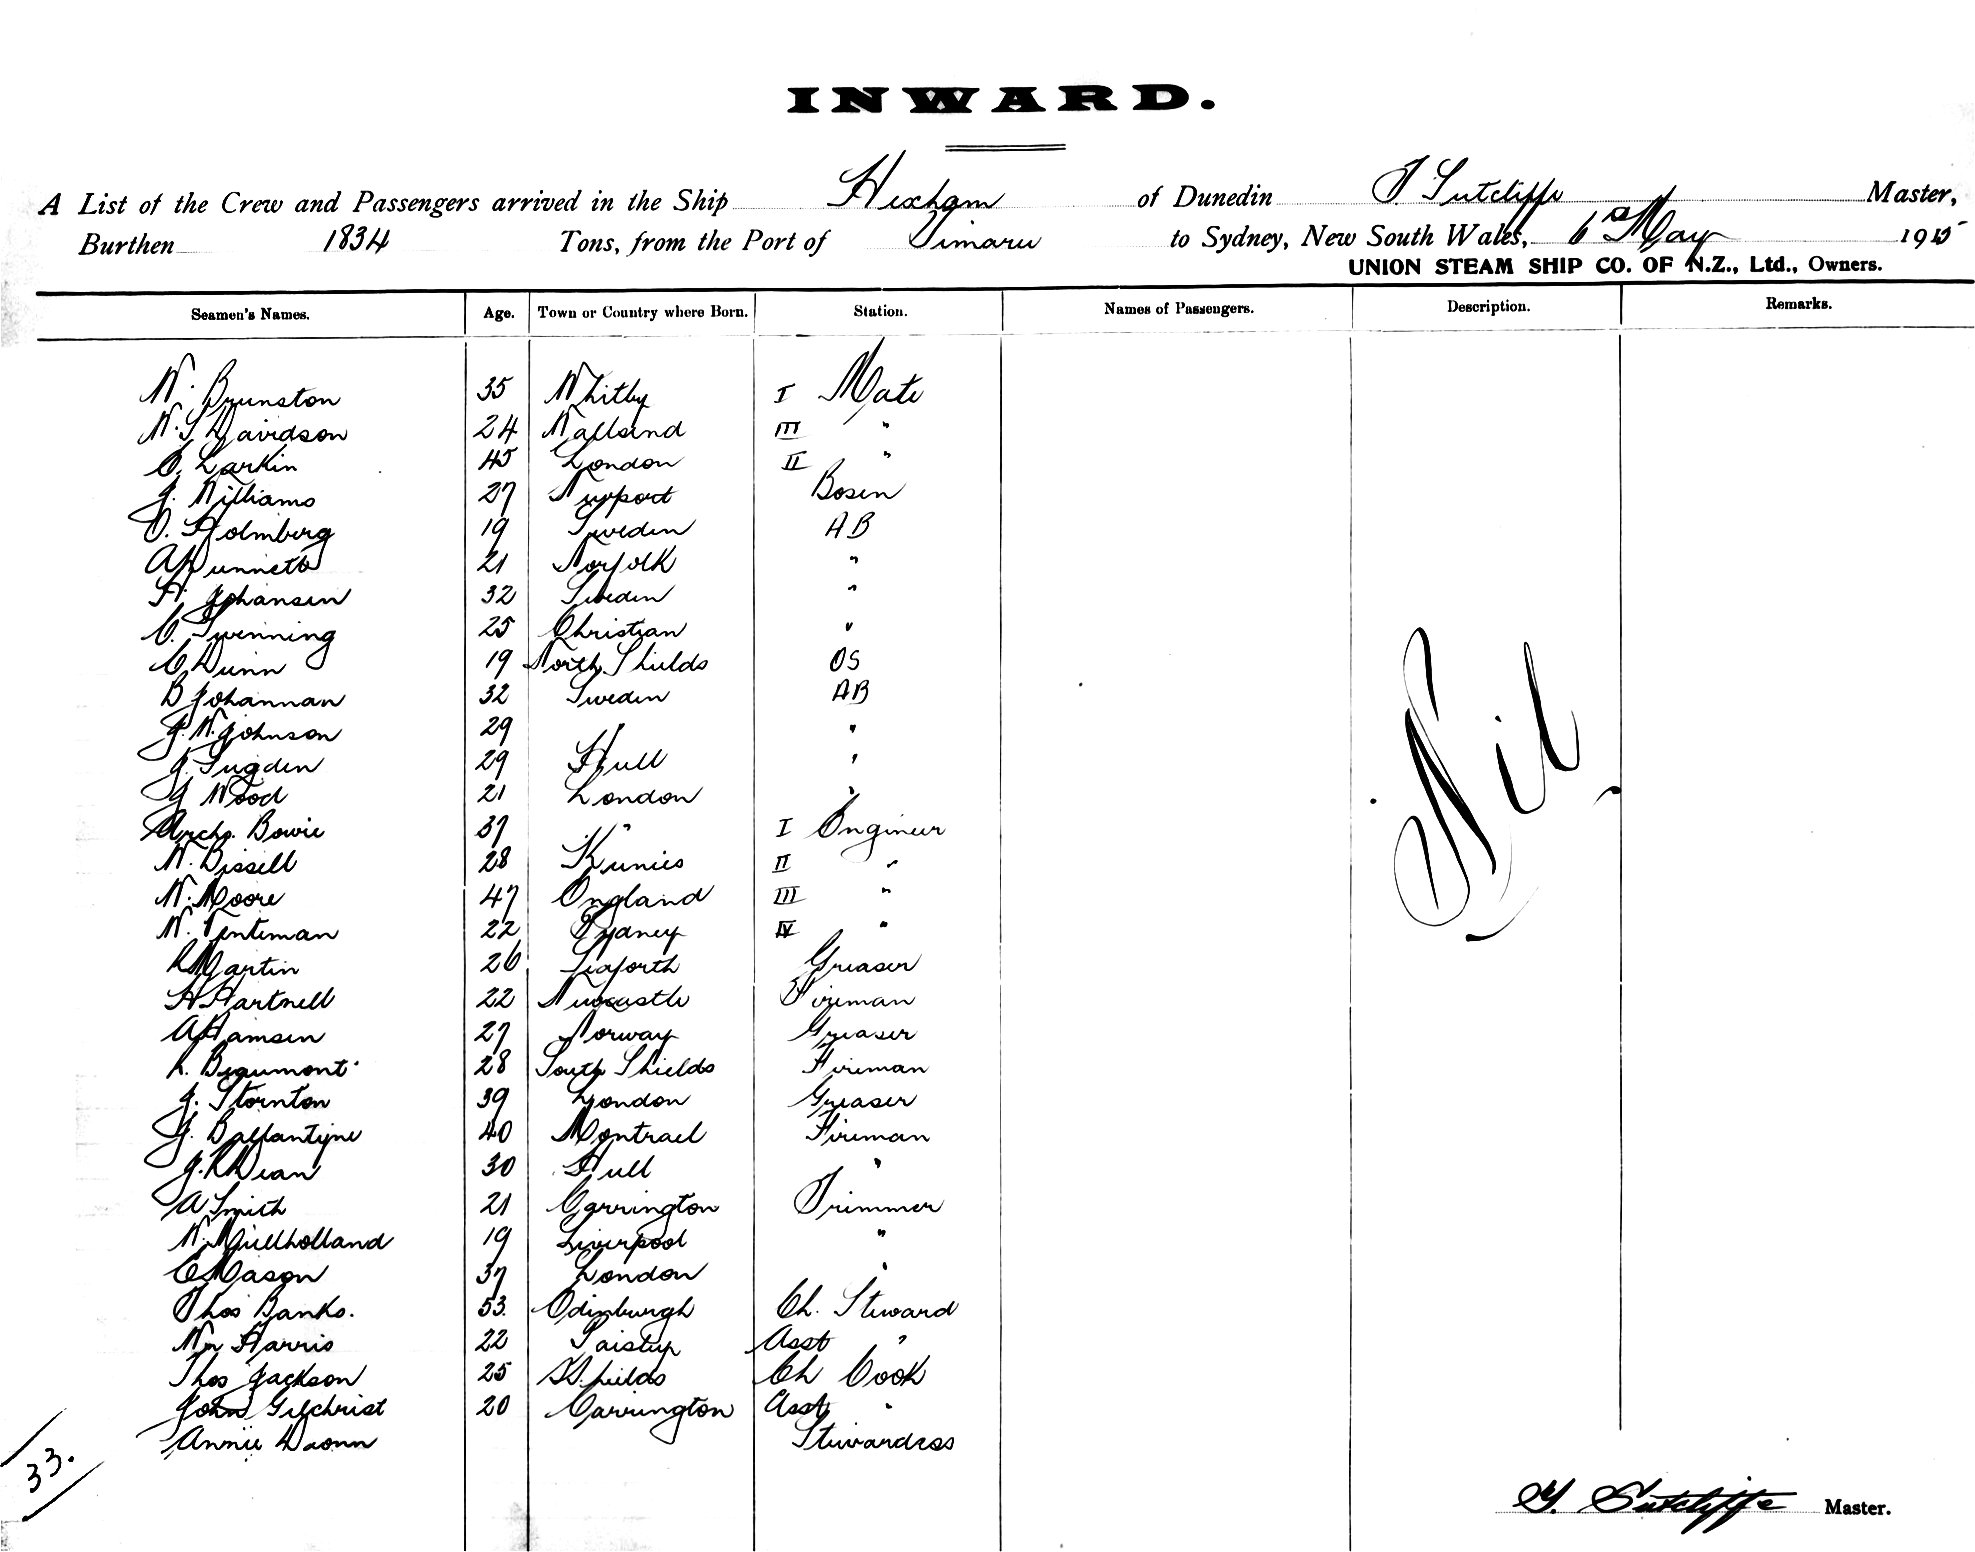 INWARD.
A List of the Crew and Passengers arrived in the Ship Hexham of Dunedin T Sutcliffe Master,
Burthen 1834 Tons, from the Port of Timaru to Sydney, New South Wales, 6th May 1915
UNION STEAM SHIP CO. OF N.Z., Ltd., Owners.
Seamen's Names. Age. Town or Country where Born. Station. Names of Passengers. Description. Remarks.
W. Brunston 35 Whitby I Mate
W. S Davidson 24 Wallsend III "
C. Larkin 45 London II "
J. Williams 27 Newport Bosen
O. Holmberg 19 Sweden AB
A Dunnett 21 Norfolk "
H. Johansen 32 Sweden "
C. Twenning 25 Christian "
C Dunn 19 North Shields OS
B Johannan 32 Sweden AB
J. W. Johnson 29 "
J. Sugden 29 Hull "
J Wood 21 London "
Archd. Bowie 37 " I Engineer
W. Bissell 28 II "
W. Moore 47 England III "
W. Tenteman 22 Sydney IV "
R Martin 26 Seaforth Greaser
H Hartnell 22 Newcastle Fireman
A Hamsen 27 Norway Greaser
R. Beaumont 28 South Shields Fireman
J. Stornton 39 London Greaser
G. Ballantyne 40 Montrael Fireman
J. R Dean 30 Hull "
A Smith 21 Carrington Trimmer
W. Mullholland 19 Liverpool "
C Mason 37 London "
Thos Banks. 53. Edinburgh Ch. Steward
Wm Harris 22 Asst "
Thos Jackson 25 S Shields Ch Cook
John Gilchrist 20 Carrington Asst "
Annie Stewardess
Nil
33.
T. Sutcliffe Master.